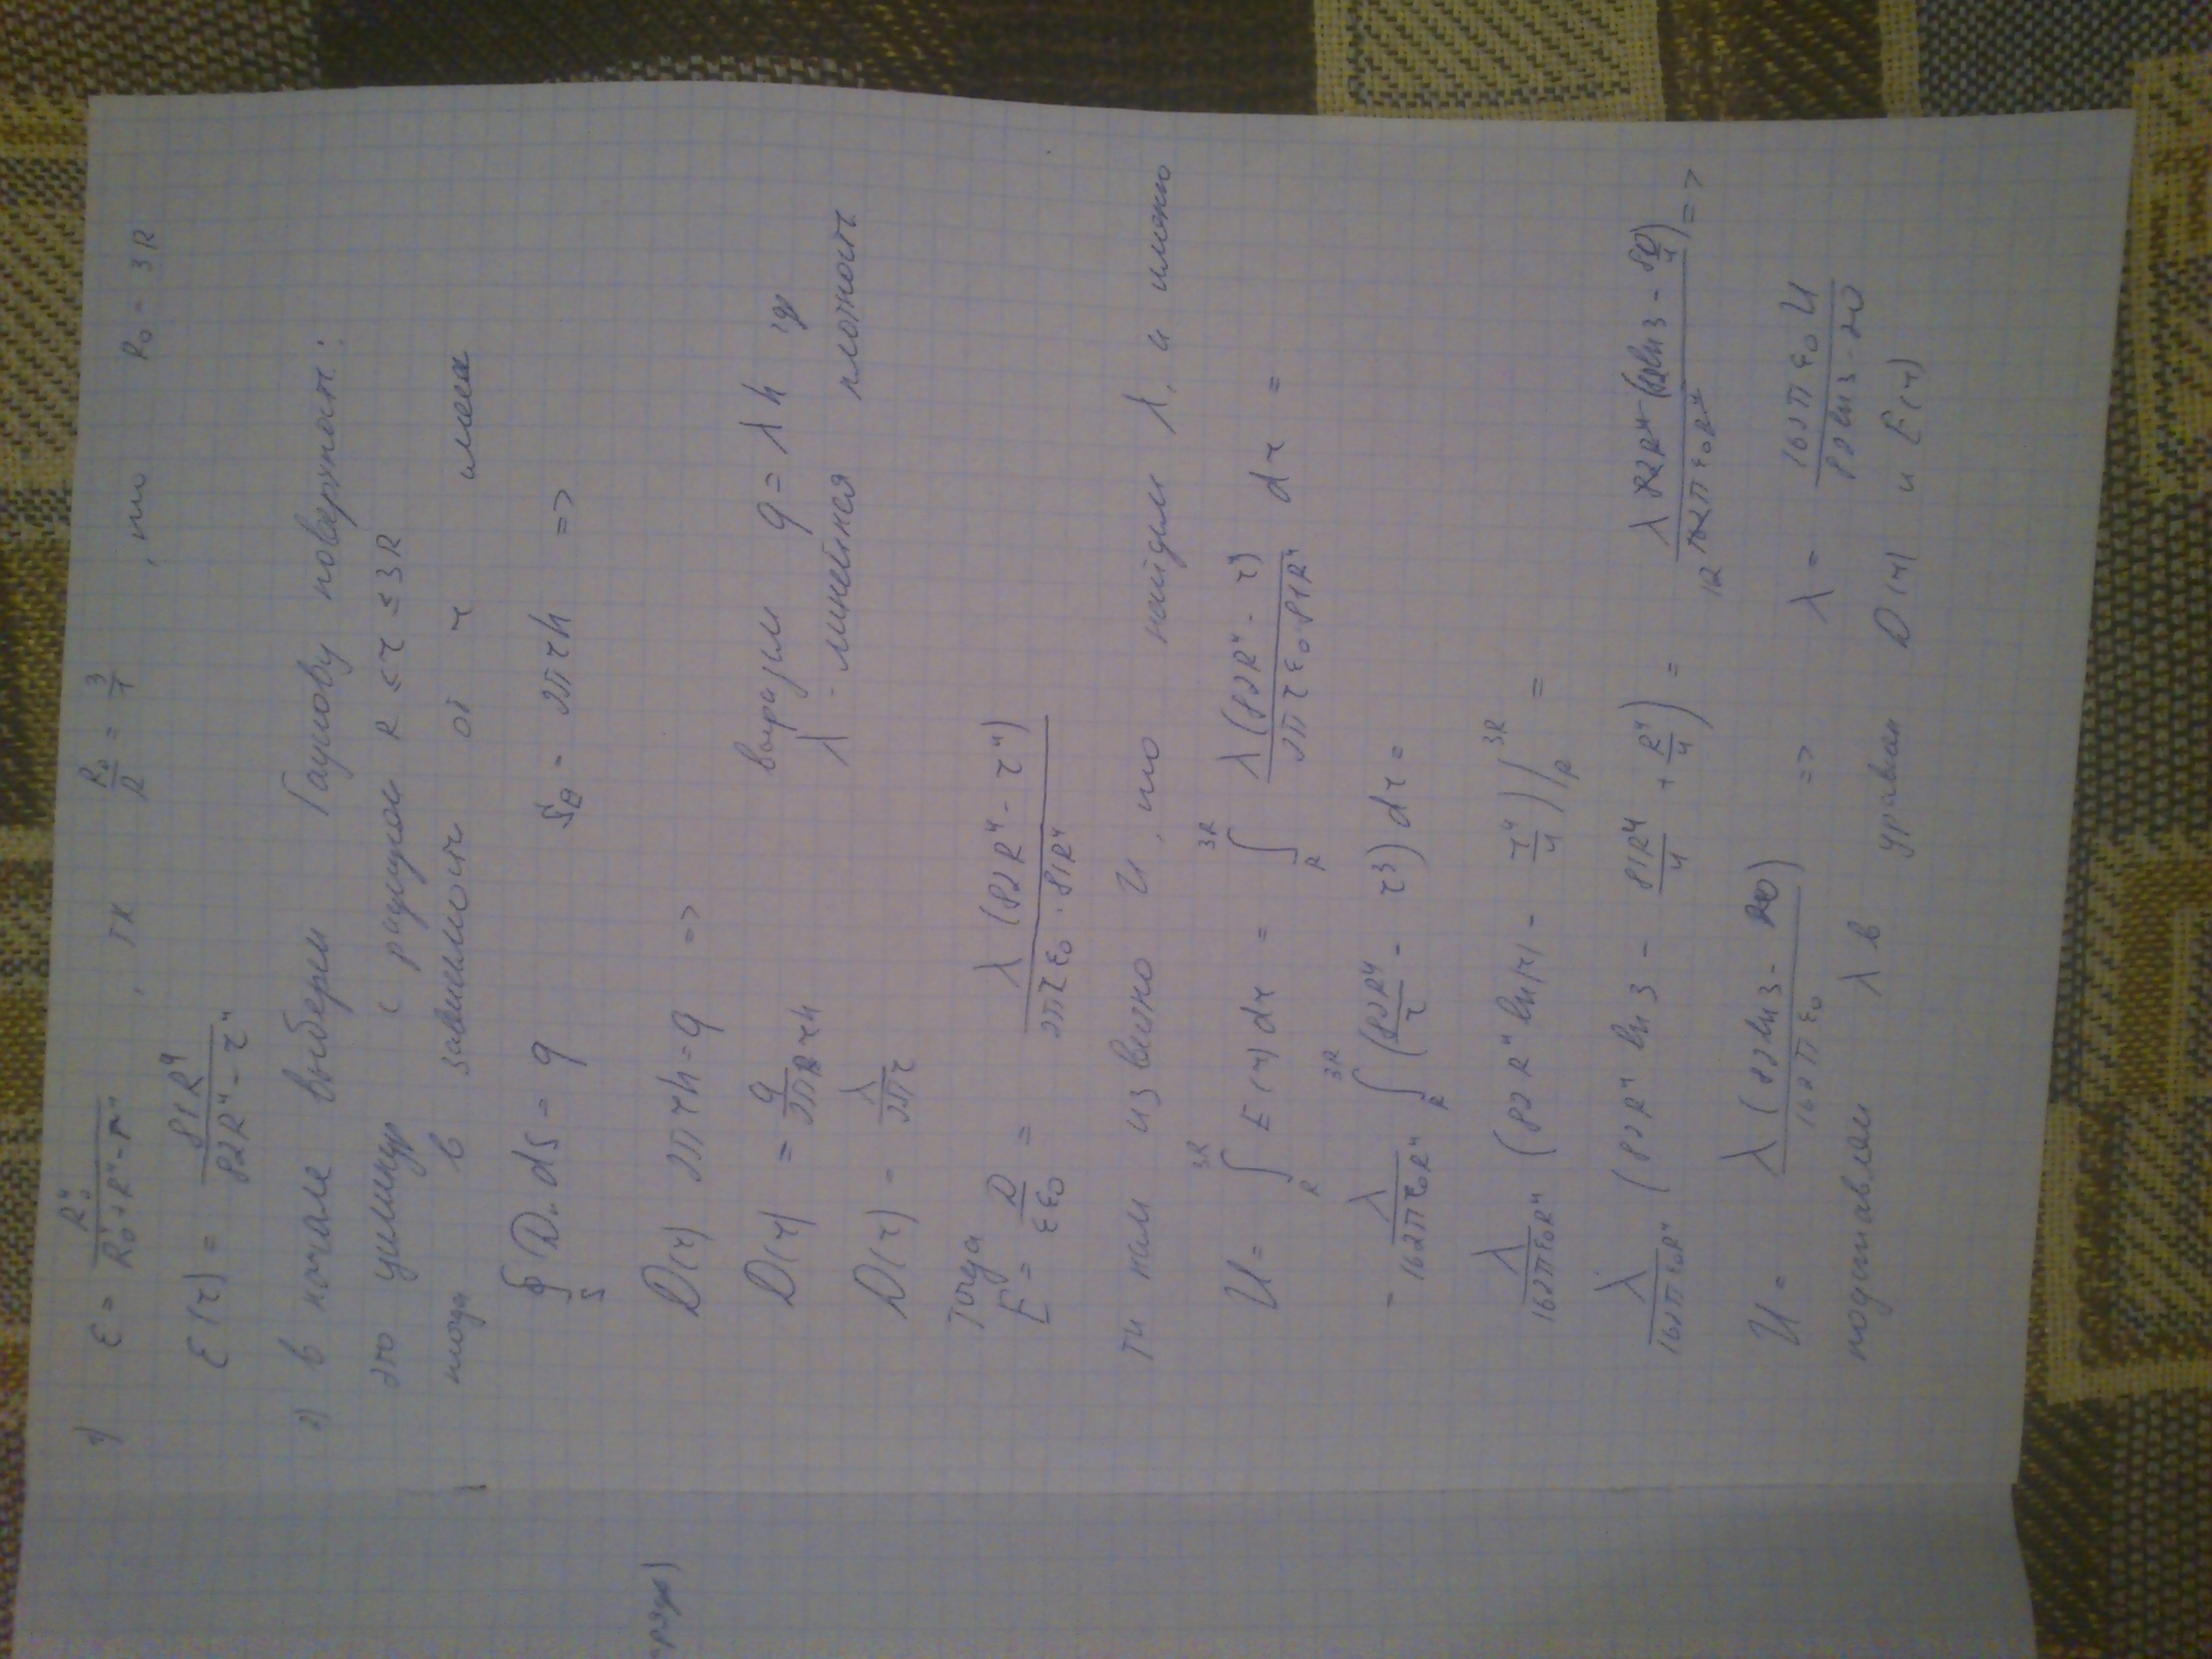 1) ε = R₀⁴ / (R₀⁴ + R⁴ - r⁴) , тк R₀/R = 3/1 , то R₀ = 3R
ε(r) = 81R⁴ / (82R⁴ - r⁴)
2) В начале выберем Гауссову поверхность:
это цилиндр с радиусом R ≤ r ≤ 3R
тогда в зависимости от r
∮_S Dₙ dS = q S_б = 2πrh =>
D(r) 2πrh = q =>
D(r) = q / 2πrh выразим q = λh где
λ - линейная плотность
D(r) = λ / 2πr
Тогда
E = D / εε₀ = λ(82R⁴ - r⁴) / (2πrε₀ · 81R⁴)
тк нам известно U, то найдем λ, а именно
U = ∫_R^3R E(r) dr = ∫_R^3R λ(82R⁴ - r⁴) / (2πrε₀ 81R⁴) dr =
= λ / 162πε₀R⁴ ∫_R^3R (82R⁴/r - r³) dr =
λ / 162πε₀R⁴ (82R⁴ ln|r| - r⁴/4) |_R^3R =
λ / 162πε₀R⁴ (82R⁴ ln3 - 81R⁴/4 + R⁴/4) = λ R⁴ (82ln3 - 80/4) / 162πε₀R⁴ =>
U = λ(82ln3 - 20) / 162πε₀ => λ = 162πε₀U / (82ln3 - 20)
подставляем λ в D(r) и E(r)